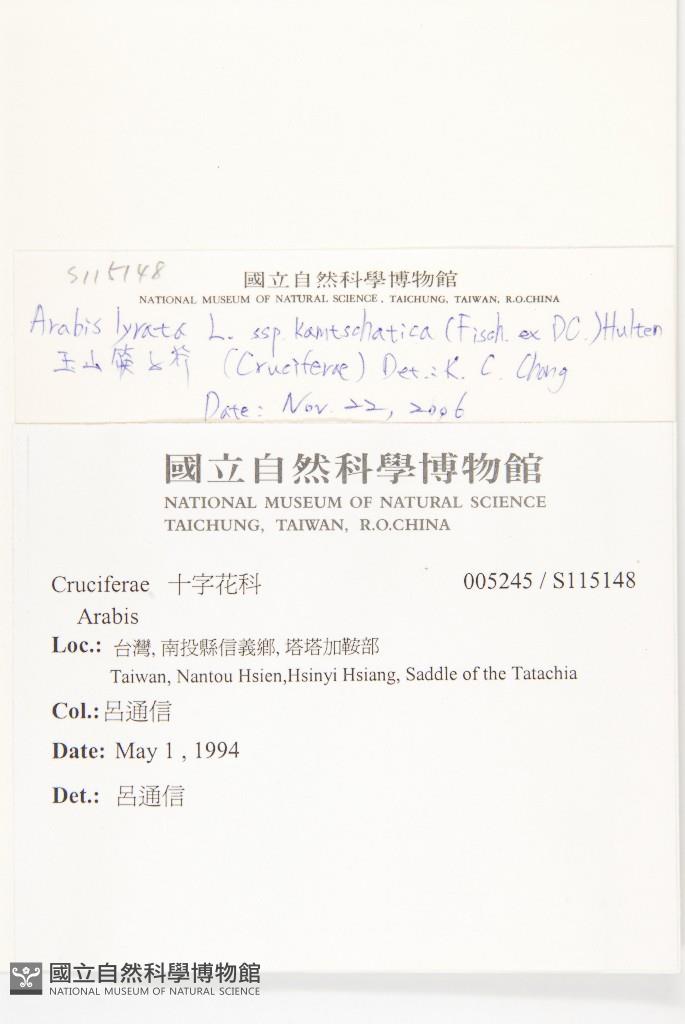 S115148
國立自然科學博物館
NATIONAL MUSEUM OF NATURAL SCIENCE, TAICHUNG, TAIWAN, R.O.CHINA
Arabis lyrata L. ssp. kamtschatica (Fisch. ex DC.) Hulten
玉山筷子芥 (Cruciferae) Det.: K. C. Chang
Date: Nov. 22, 2006
國立自然科學博物館
NATIONAL MUSEUM OF NATURAL SCIENCE
TAICHUNG, TAIWAN, R.O.CHINA
Cruciferae 十字花科 005245 / S115148
Arabis
Loc.: 台灣, 南投縣信義鄉, 塔塔加鞍部
Taiwan, Nantou Hsien,Hsinyi Hsiang, Saddle of the Tatachia
Col.: 呂通信
Date: May 1 , 1994
Det.: 呂通信
國立自然科學博物館
NATIONAL MUSEUM OF NATURAL SCIENCE